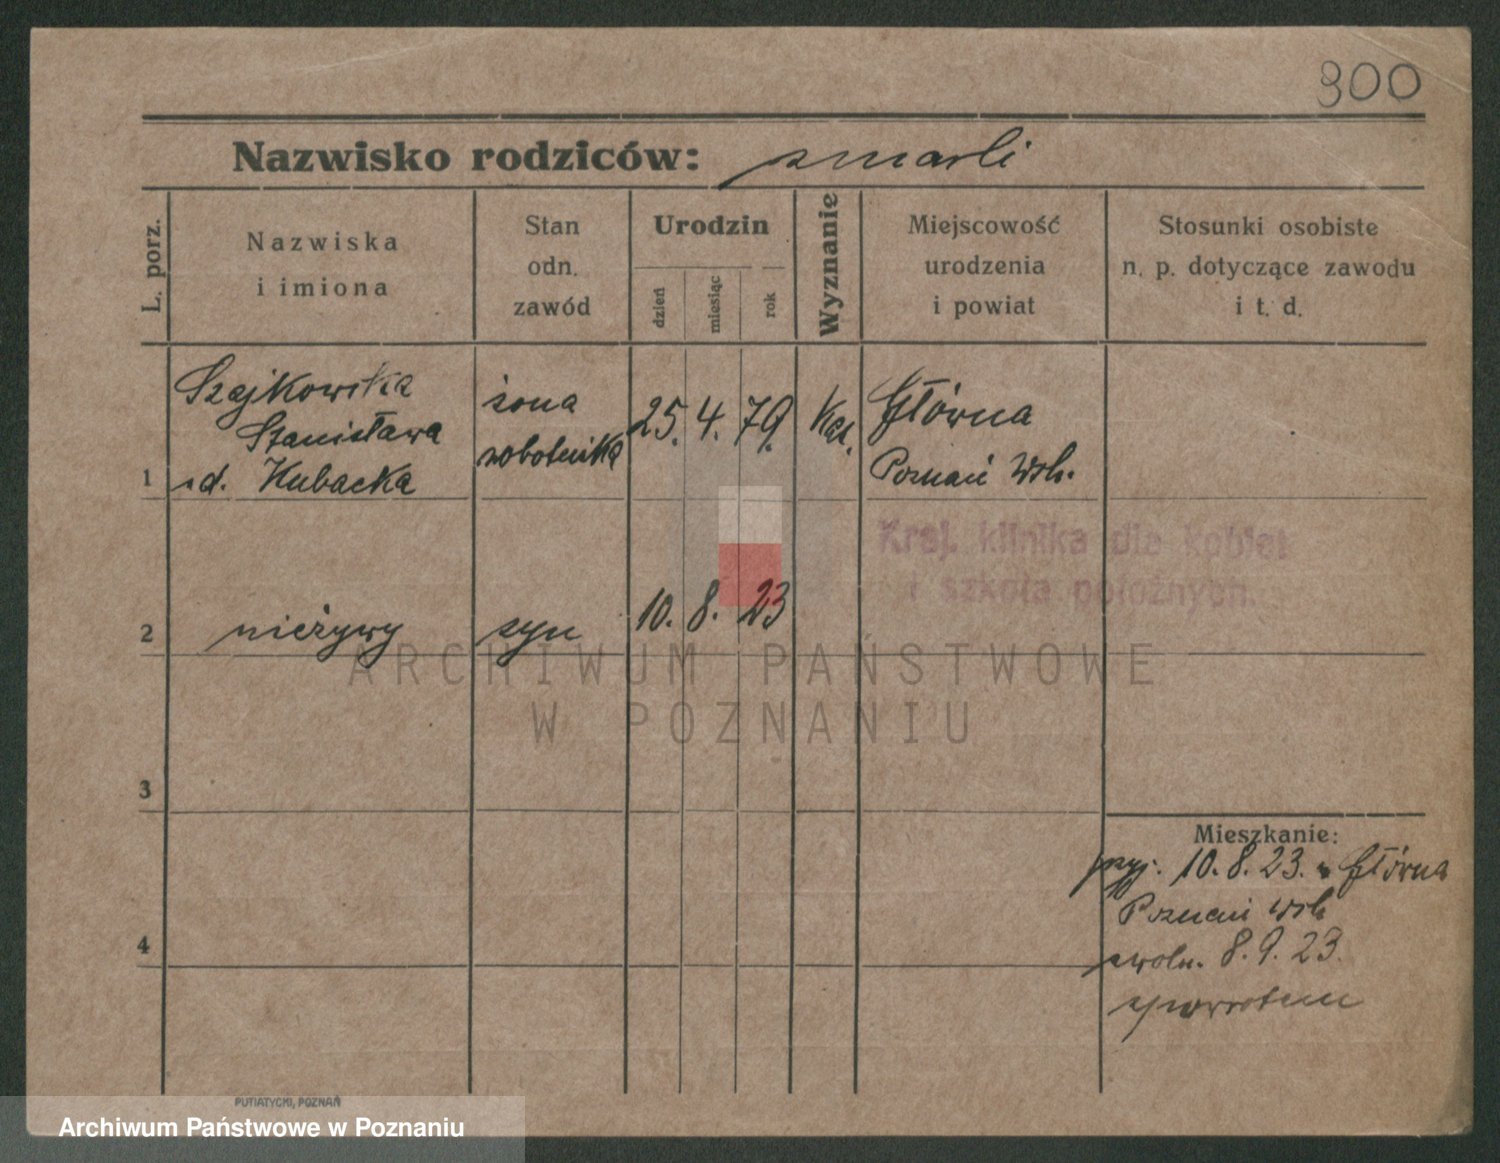 300
Nazwisko rodziców: zmarli
L. porz.
Nazwiska
i imiona
Stan
odn.
zawód
Urodzin
dzień
miesiąc
rok
Wyznanie
Miejscowość
urodzenia
i powiat
Stosunki osobiste
n. p. dotyczące zawodu
i t. d.
Szajkowska żona 25. 4. 79. Kat. Główna
Stanisława robotnika Poznań Wsh.
1 z d. Kubacka
Kraj. klinika dla kobiet
i szkoła położnych.
2 nieżywy syn 10. 8. 23
ARCHIWUM PAŃSTWOWE
W POZNANIU
3
Mieszkanie:
przyj. 10. 8. 23. z Główna
Poznań Wsh
4
zwoln. 8. 9. 23.
zpowrotem
PUTIATYCKI, POZNAŃ
Archiwum Państwowe w Poznaniu